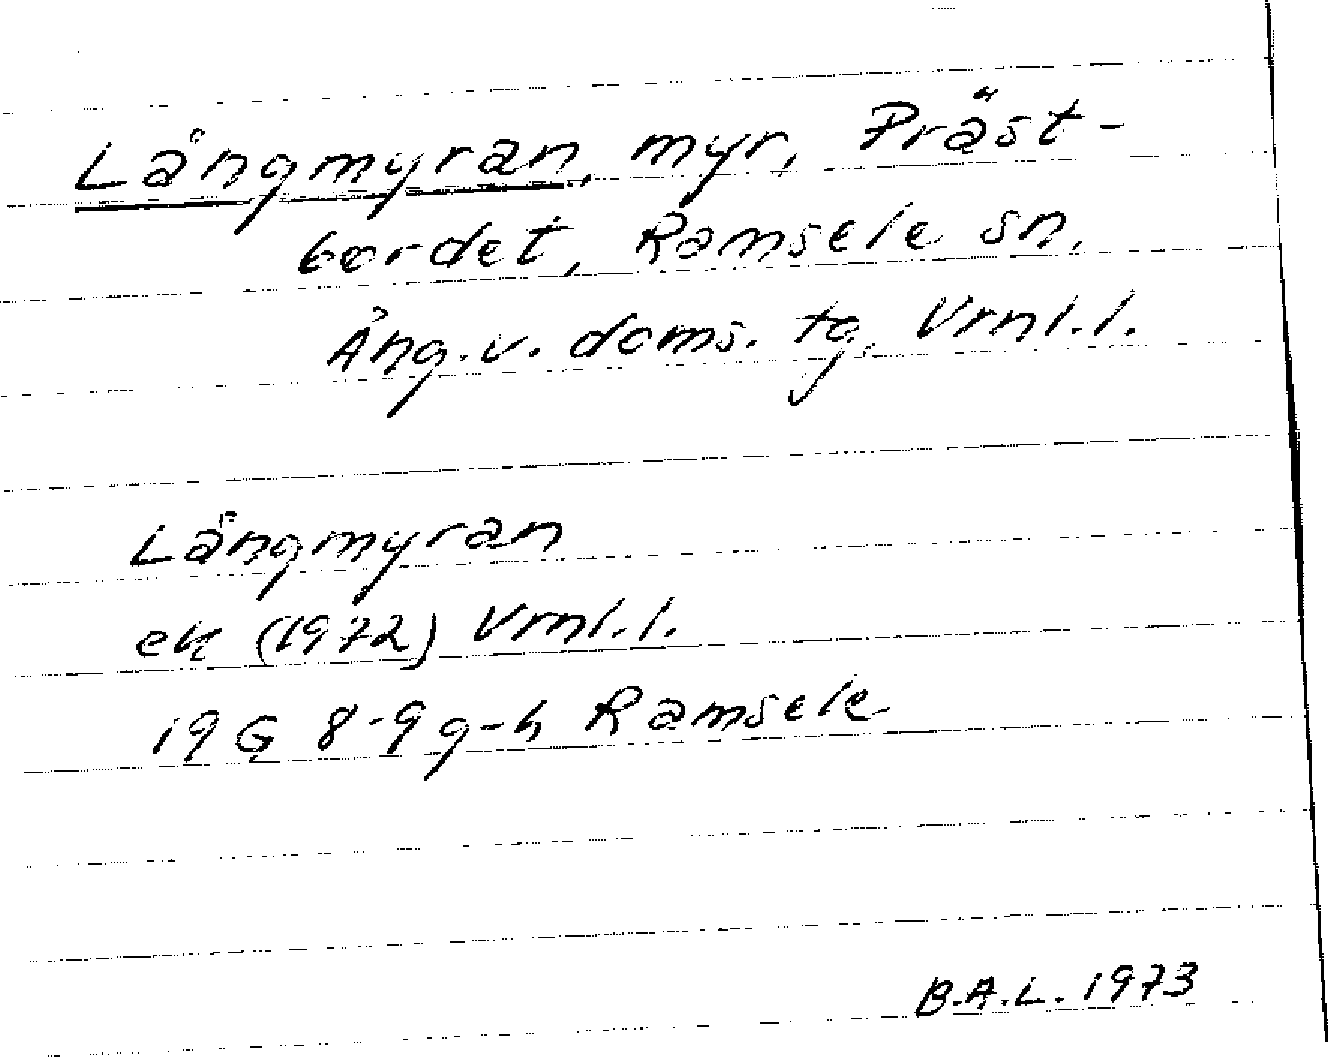 Långmyran, myr, Präst-
bordet, Ramsele sn,
Ång. v. doms. tg, Vrnl. l.
Långmyran
ek (1972) Vrnl. l.
19 G 8-9 g-h Ramsele
B.A.L. 1973